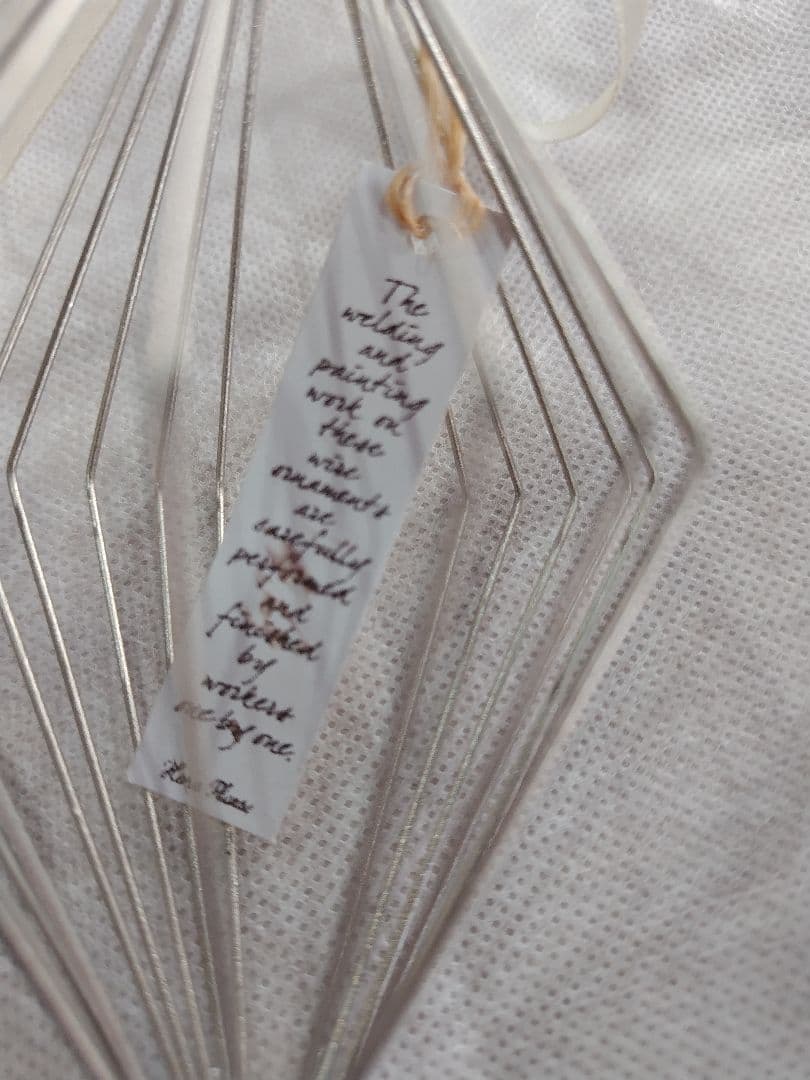 The
welding
and
painting
work on
these
wire
ornaments
are
carefully
performed
and
finished
by
workers
one by one.